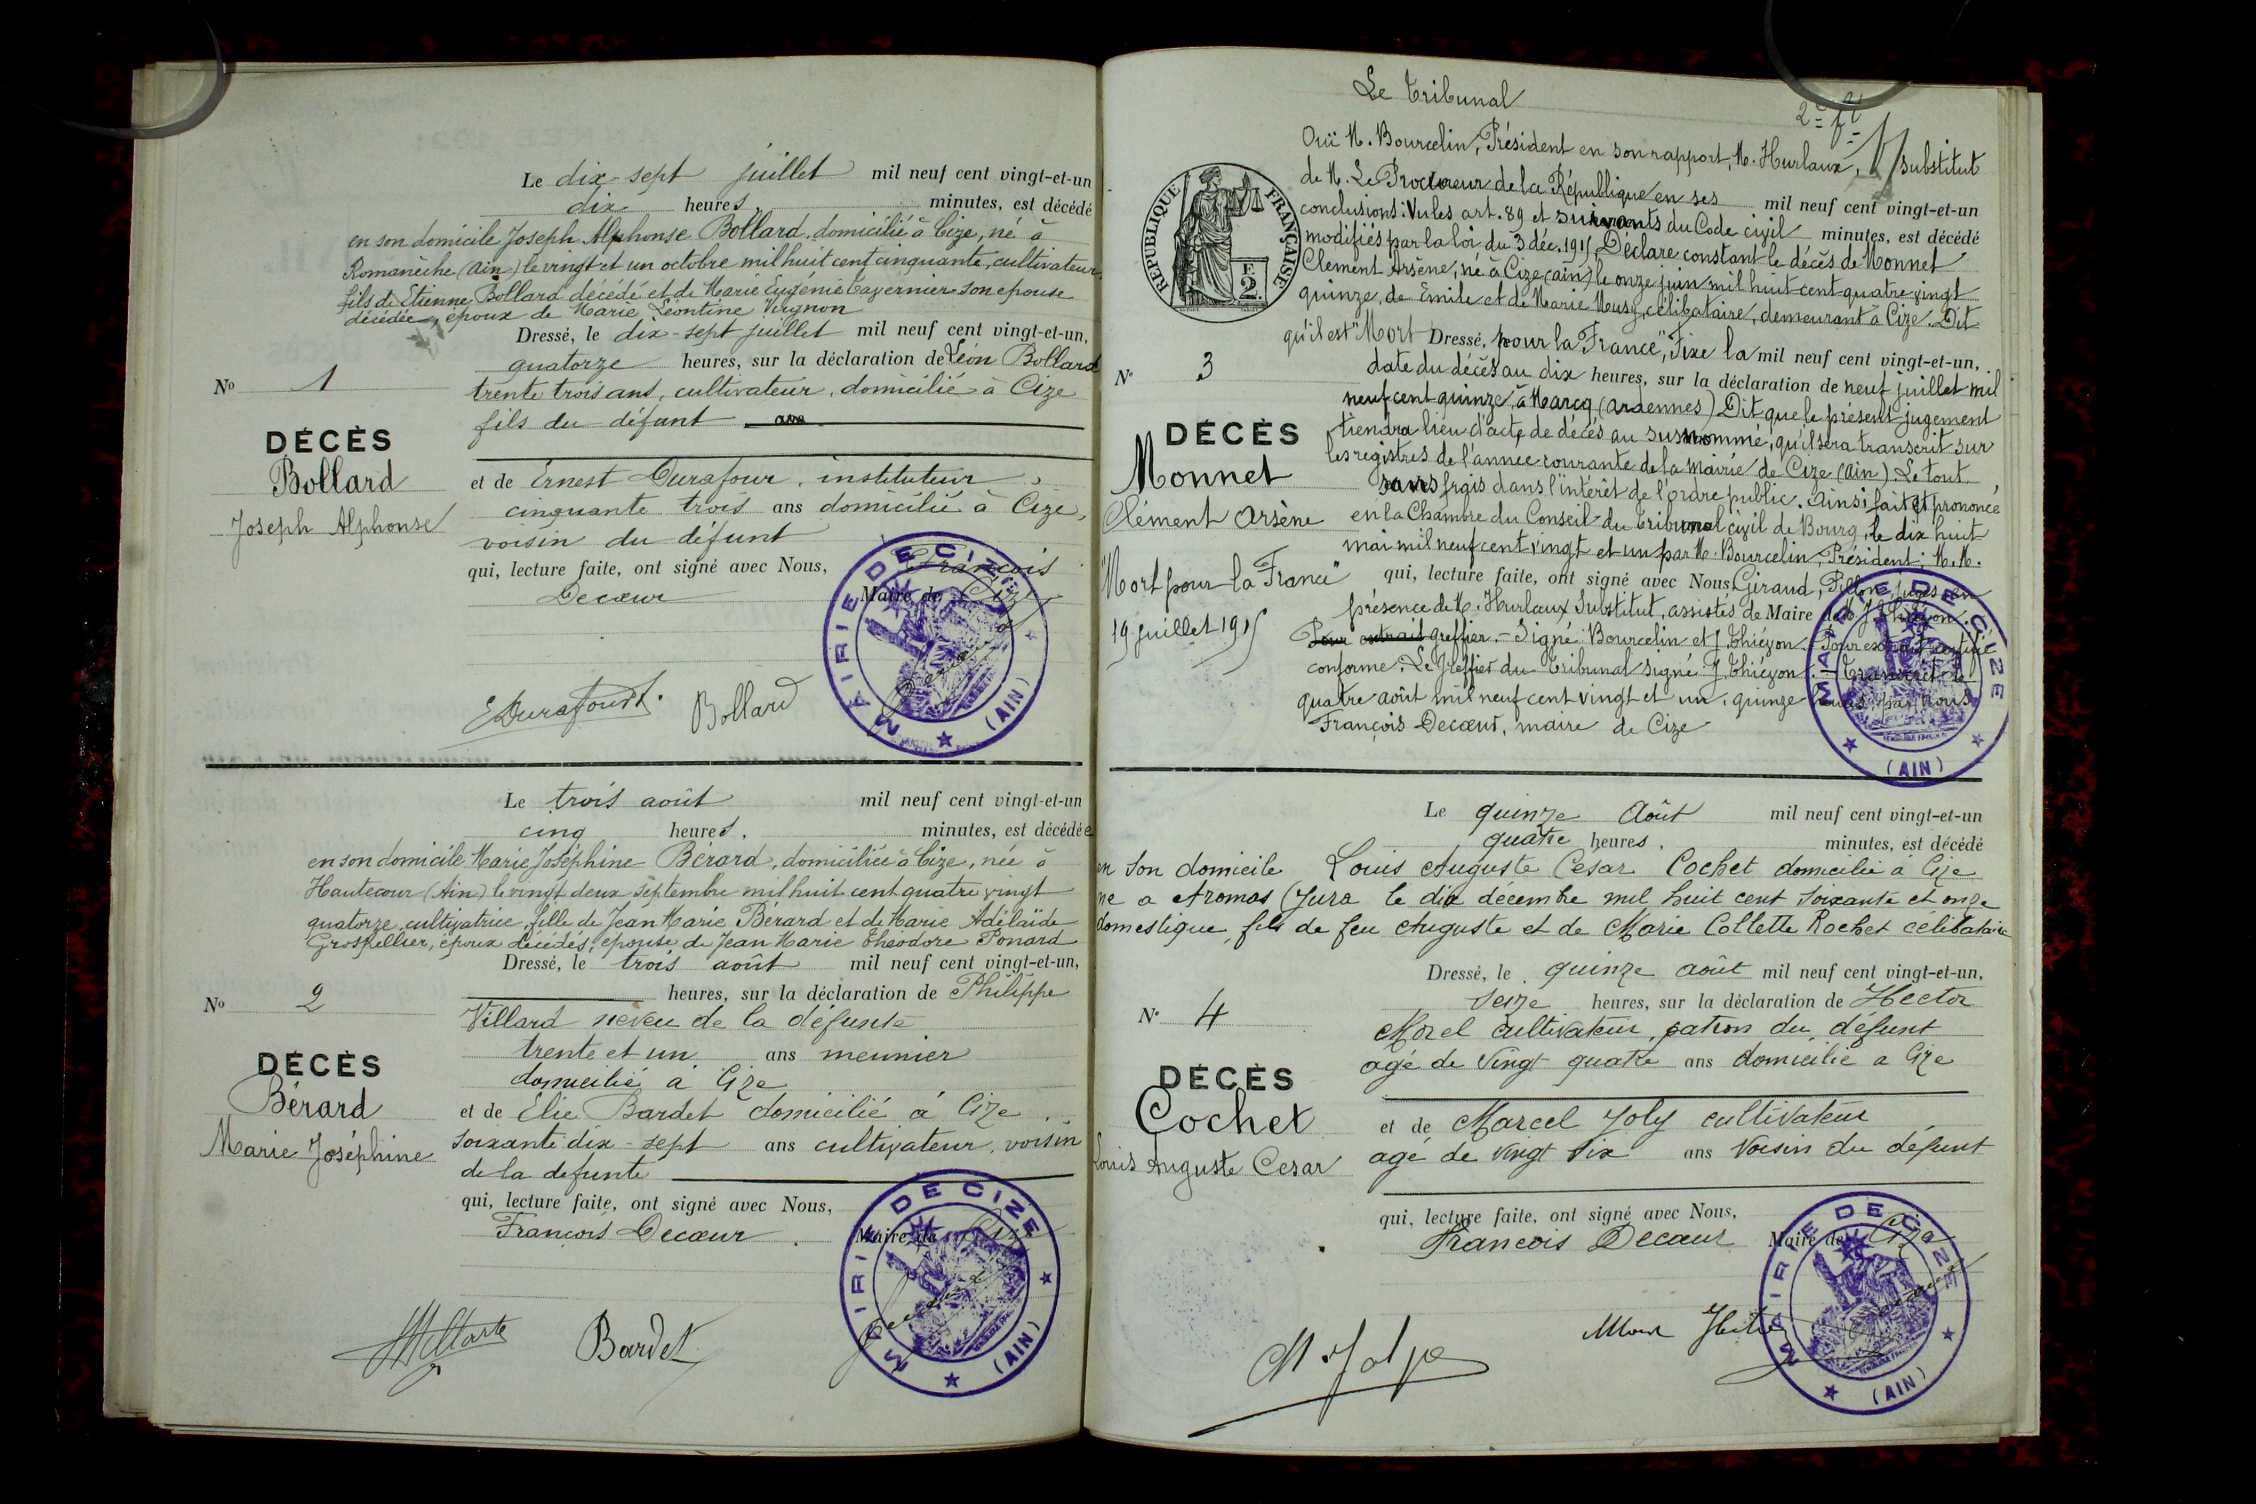 Le dix-sept juillet mil neuf cent vingt-et-un
dix heures, minutes, est décédé
en son domicile Joseph Alphonse Bollard, domicilié à Cize, né à
Romanèche (Ain) le vingt et un octobre mil huit cent cinquante, cultivateur
fils de Etienne Bollard décédé et de Marie Eugénie Tavernier son epouse
décédée, époux de Marie Léontine Vugnon
Dressé, le dix-sept juillet mil neuf cent vingt-et-un,
quatorze heures, sur la déclaration de Léon Bollard
No 1
trente trois ans, cultivateur, domicilié à Cize
fils du défunt ans
DÉCÈS
Bollard
Joseph Alphonse
et de Ernest Durafour, instituteur,
cinquante trois ans domicilié à Cize,
voisin du défunt
qui, lecture faite, ont signé avec Nous, François
Decœur Maire de Cize
MAIRIE DE CIZE (AIN)
EDurafour. Bollard
Le trois août mil neuf cent vingt-et-un
cinq heures, minutes, est décédée
en son domicile Marie Joséphine Bérard, domiciliée à Cize, née à
Hautecour (Ain) le vingt deux septembre mil huit cent quatre vingt
quatorze, cultivatrice, fille de Jean Marie Bérard et de Marie Adélaïde
Grospellier, époux décédés, epouse de Jean Marie Théodore Ponard
Dressé, le trois août mil neuf cent vingt-et-un,
heures, sur la déclaration de Philippe
No 2
Villard neveu de la défunte
trente et un ans meunier
domicilié à Cize
DÉCÈS
Bérard
Marie Joséphine
et de Élie Bardet domicilié à Cize,
soixante dix-sept ans cultivateur, voisin
de la defunte
qui, lecture faite, ont signé avec Nous,
François Decœur. Maire de Cize
MAIRIE DE CIZE (AIN)
Bardet
Le Tribunal
2e ft
Ouï M. Bourcelin, Président en son rapport, M. Hurlaux, substitut
de M. Le Procureur de la République en ses mil neuf cent vingt-et-un
conclusions: Vu les art. 89 et suivants du Code civil minutes, est décédé
modifiés par la loi du 3 déc. 1915, Déclare constant le décès de Monnet
Clement Arsène, né à Cize (ain) le onze juin mil huit cent quatre vingt
quinze, de Emile et de Marie Musy, célibataire, demeurant à Cize. Dit
qu'il est "Mort Dressé, pour la France", Fixe la mil neuf cent vingt-et-un,
RÉPUBLIQUE FRANÇAISE
F
2
date du décès au dix heures, sur la déclaration de neuf juillet mil
No 3
neuf cent quinze, à Marcq (ardennes) Dit que le présent jugement
tiendra lieu d'acte de décès au susnommé, qu'il sera transcrit sur
les registres de l'année courante de la mairie de Cize (ain). Le tout
sans frais dans l'intérêt de l'ordre public. Ainsi fait et prononcé
en la Chambre du Conseil du Tribunal civil de Bourg, le dix huit
mai mil neuf cent vingt et un par M. Bourcelin, Président; M.M.
qui, lecture faite, ont signé avec Nous, Giraud, Pillon, juges en
présence de M. Hurlaux Substitut, assistés de Maire de J. Thiévon
Pour extrait greffier. - Signé: Bourcelin et J. Thiévon. - Pour extrait certifié
conforme. Le Greffier du Tribunal signé J. Thiévon. Transcrit le
quatre août mil neuf cent vingt et un, quinze heures, par nous
François Decœur, maire de Cize
DÉCÈS
Monnet
Clément Arsène
"Mort pour la France"
19 juillet 1915
MAIRIE DE CIZE (AIN)
Le quinze Août mil neuf cent vingt-et-un
quatre heures, minutes, est décédé
en son domicile Louis Auguste Cesar Cochet domicilié à Cize
né a Aromas (Jura le dix décembre mil huit cent soixante et onze
domestique, fils de feu Auguste et de Marie Collette Rochet célibataire
Dressé, le quinze août mil neuf cent vingt-et-un,
seize heures, sur la déclaration de Hector
No 4
Morel cultivateur, patron du défunt
agé de Vingt quatre ans domicilié a Cize
DÉCÈS
Cochet
Louis Auguste Cesar
et de Marcel Joly cultivateur
agé de vingt six ans voisin du défunt
qui, lecture faite, ont signé avec Nous,
François Decœur Maire de Cize
MAIRIE DE CIZE (AIN)
M. Joly